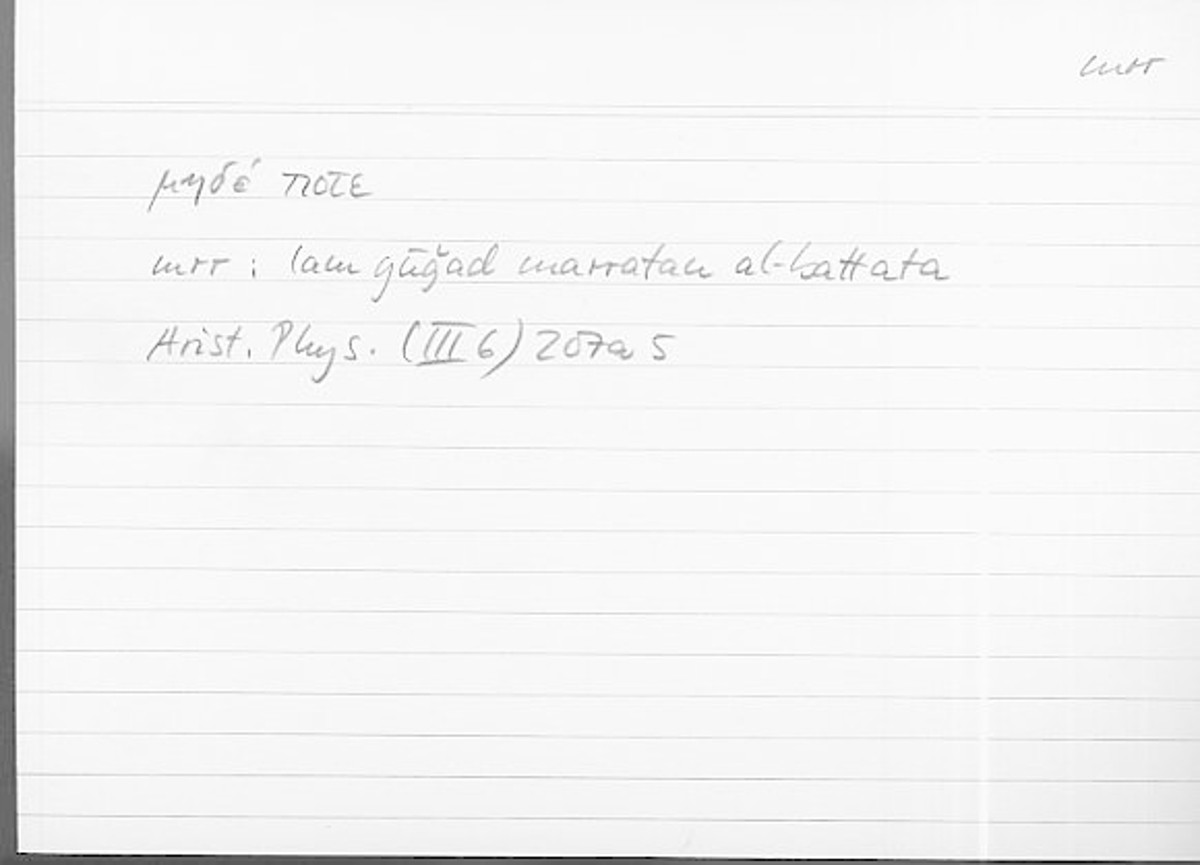 mrr
μηδέ ποτε
mrr : lam yūǧad marratan al-battata
Arist. Phys. (III 6) 207a 5